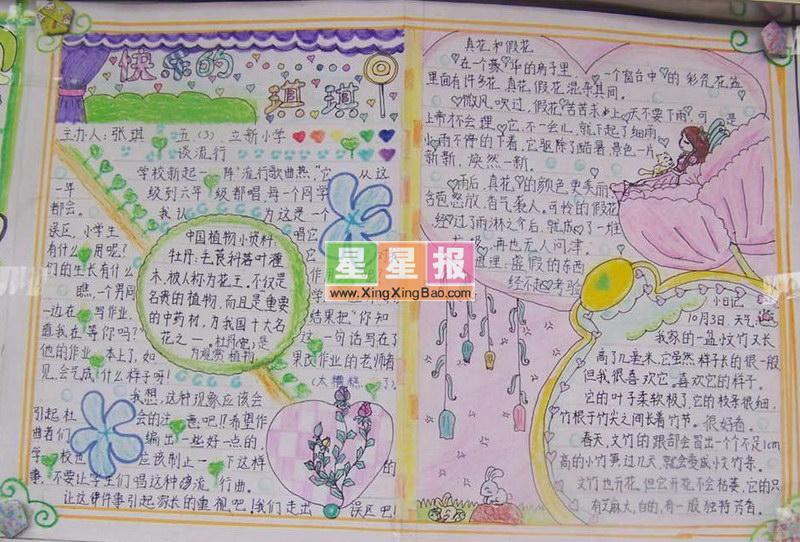 快乐的
琪琪
主办人：张琪 五（3） 立新小学
谈流行
学校新起一阵"流行歌曲热"它从这
一年级到六年级都唱，每个同学
都会。我认为这是一个
误区，小学生唱它
有什么用呢？
们的生长有什么
瞧，一个男同学
一边在写作业，结果把"你知
道我在等你吗？"这一句话写在了
他的作业本上了，如果改作业的老师看
见，会气成什么样子呀！（太糟糕了）
我想，这种现象应该会
引起社会的注意吧！！希望作
曲者们编出一些好一点的，
学校也应该制止一下这样的
事，不要让学生们唱这种流行曲。
让这件事引起家长的重视吧！我们走出误区吧！
中国植物小资料
牡丹：
木，被人称为花王。不仅是
名贵的植物，而且是重要
的中药材，为我国十大名
花之一，牡丹（皂）是
为观赏植物
真花和假花
在一个豪华的房子里，一个窗台中的彩瓷花盆
里面有许多花，真花、假花混杂其间。
微风吹过，假花苦苦求上天不要下雨，可是
上帝才不会理它，不一会儿，就下起了细雨
小雨不停的下着，它驱除了暑，景色一片
新新，焕然一新。
雨后，真花的颜色更美丽
含苞怒放，香气袭人。可怜的假花
经过了雨淋之后，就成了一堆
再也无人问津。
虚假的东西
经不起考验
星星报
www.XingXingBao.com
小日记
10月3日，天气
我家的一盆文竹又长
高了几毫米，它虽然样子长的很一般
但我很喜欢它，喜欢它的样子。
它的叶子柔软极了，它的枝条很细，
竹根于竹尖之间长着竹节。很好看。
春天，文竹的跟部会冒出一个个不足1cm
高的小竹笋，过几天，就会变成小文竹条。
文竹也开花，但它开花不会枯萎，它的只
有芝麻大，白的，有一股独特芳香。